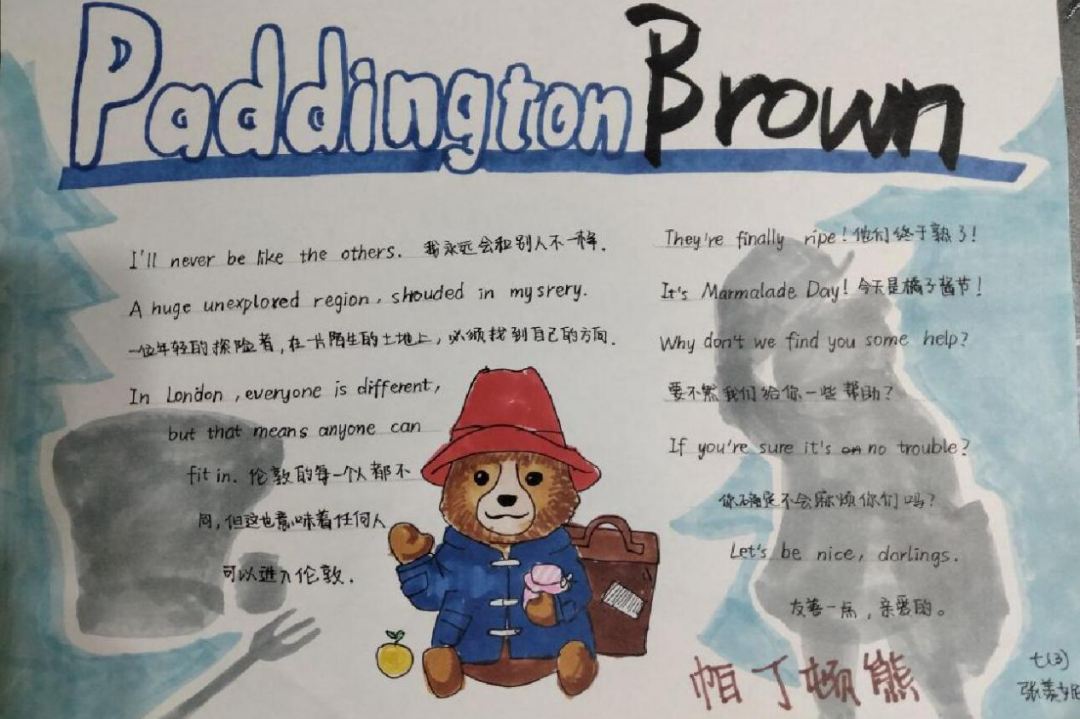 Paddington Brown
I'll never be like the others. 我永远会和别人不一样.
A huge unexplored region, shouded in mysrery.
一位年轻的探险者,在一片陌生的土地上,必须找到自己的方向.
In London, everyone is different,
but that means anyone can
fit in. 伦敦的每一个人都不
同,但这也意味着任何人
可以进入伦敦.
They're finally ripe! 他们终于熟了!
It's Marmalade Day! 今天是橘子酱节!
Why don't we find you some help?
要不然我们给你一些帮助?
If you're sure it's no trouble?
你确定不会麻烦你们吗?
Let's be nice, darlings.
友善一点,亲爱的。
帕丁顿熊
七(3)
张